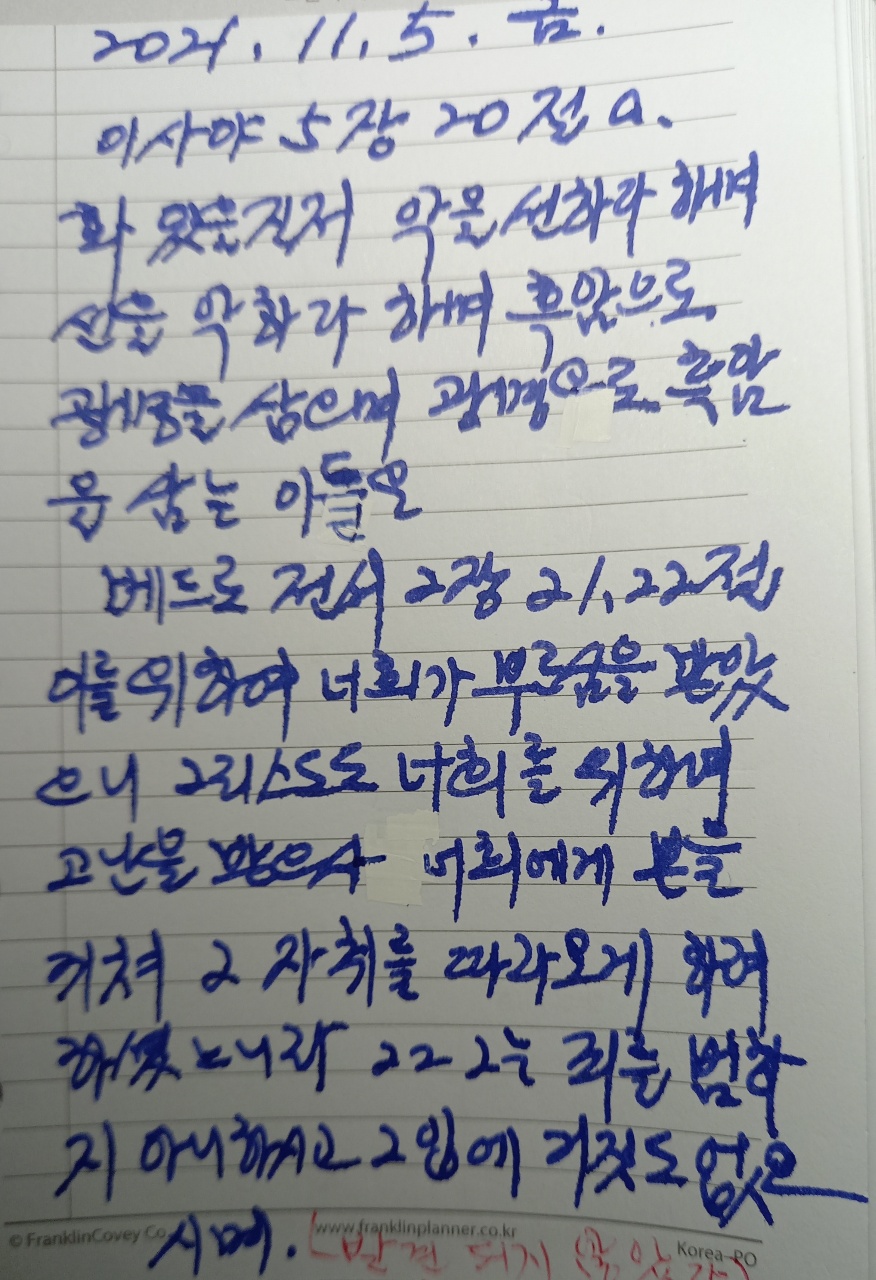 2021. 11. 5. 금.
이사야 5장 20절 a.
화 있을진저 악을 선하다 하며
선을 악하다 하며 흑암으로
광명을 삼으며 광명으로 흑암
을 삼는 자들은
베드로 전서 2장 21, 22절
이를 위하여 너희가 부르심을 받았
으니 그리스도도 너희를 위하여
고난을 받으사 너희에게 본을
끼쳐 그 자취를 따라오게 하려
하셨느니라 22 그는 죄를 범하
지 아니하시고 그 입에 거짓도 없으
시며. [발견 되지 않았다]
© FranklinCovey Co. www.franklinplanner.co.kr Korea-PO